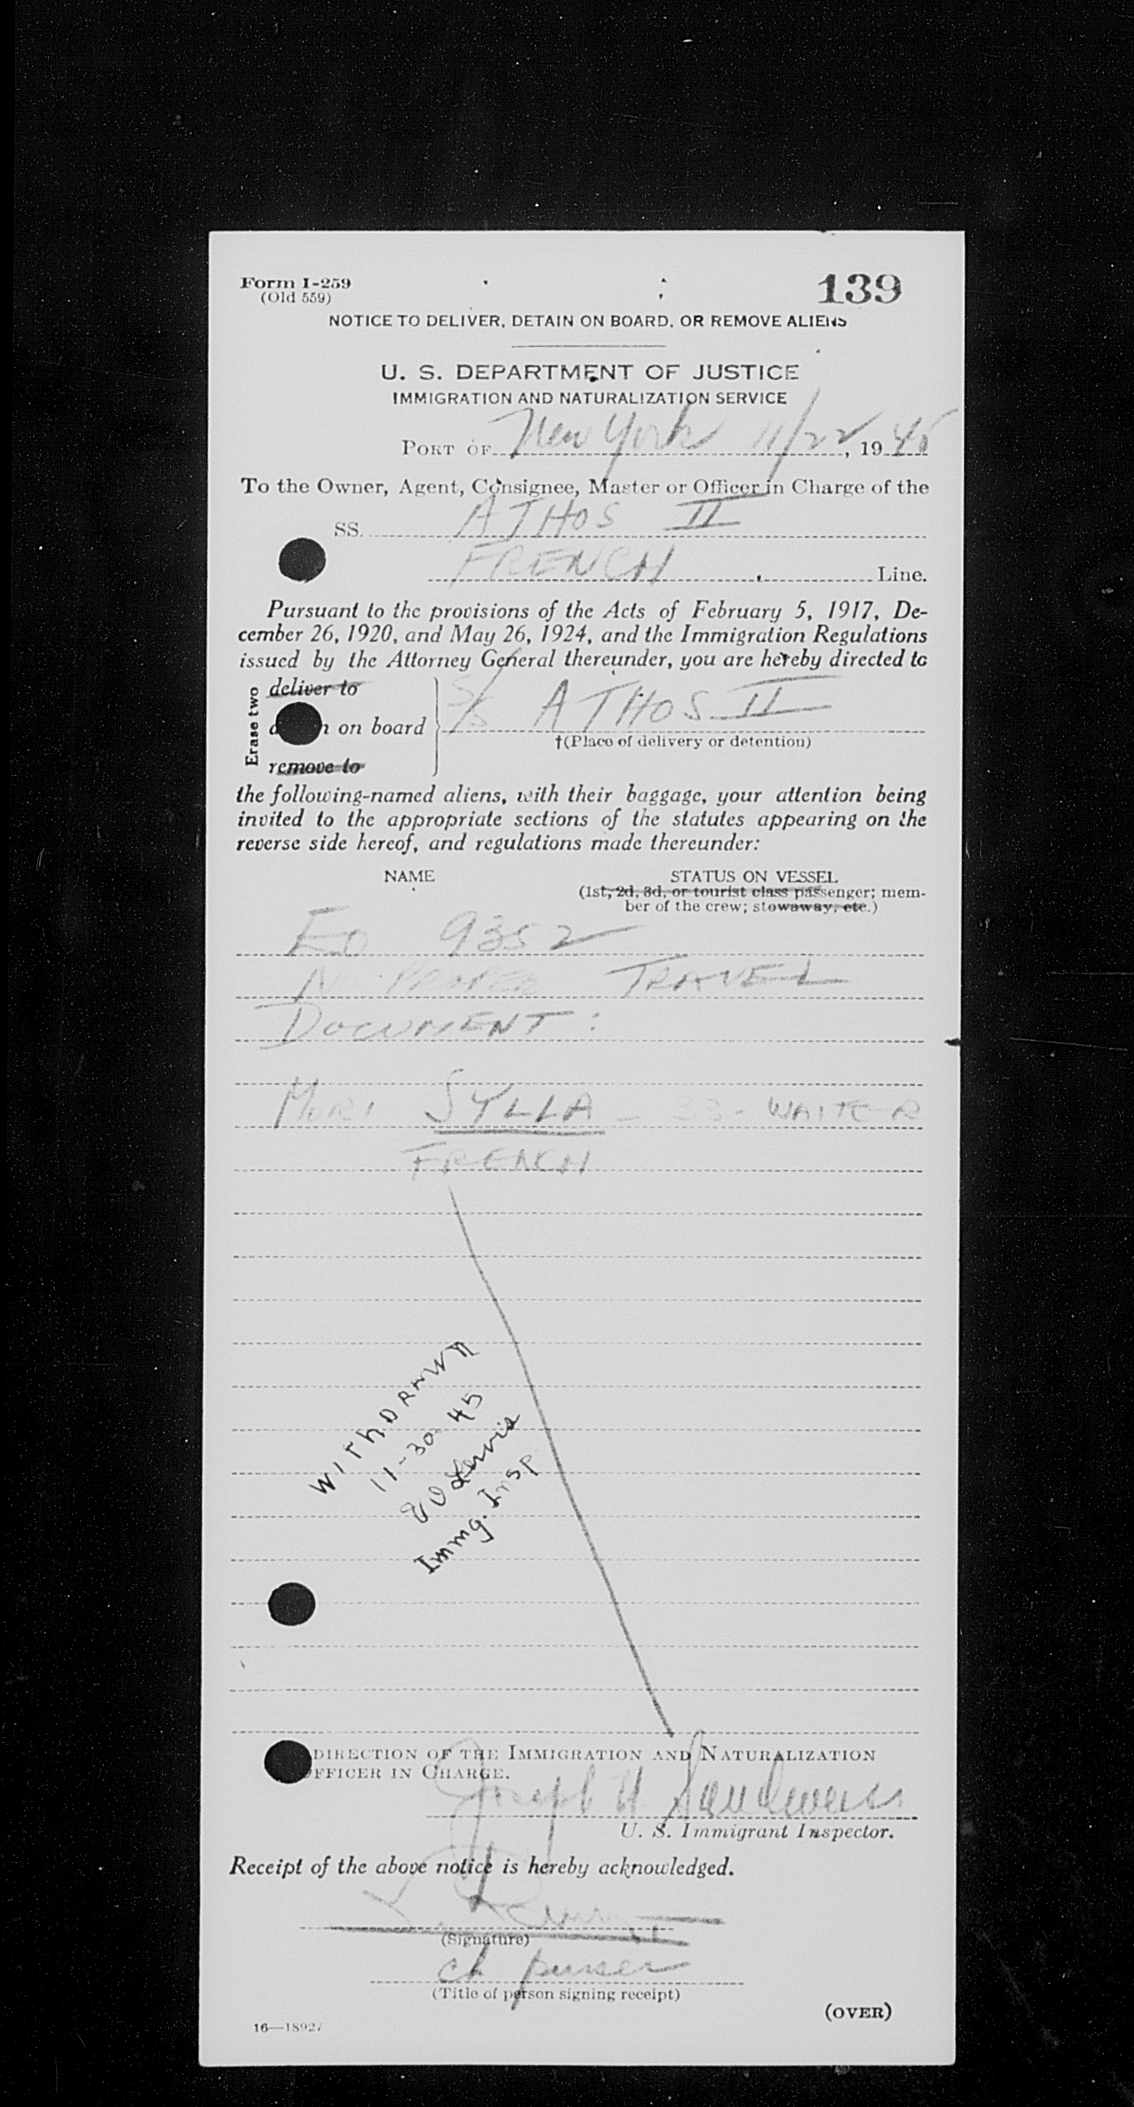 Form I-259
(Old 559)
139
NOTICE TO DELIVER, DETAIN ON BOARD, OR REMOVE ALIENS
U. S. DEPARTMENT OF JUSTICE
IMMIGRATION AND NATURALIZATION SERVICE
PORT OF New York 11/22, 1945
To the Owner, Agent, Consignee, Master or Officer in Charge of the
SS. ATHOS II
FRENCH Line.
Pursuant to the provisions of the Acts of February 5, 1917, De-
cember 26, 1920, and May 26, 1924, and the Immigration Regulations
issued by the Attorney General thereunder, you are hereby directed to
Erase two
deliver to
on board S/S ATHOS II
†(Place of delivery or detention)
remove to
the following-named aliens, with their baggage, your attention being
invited to the appropriate sections of the statutes appearing on the
reverse side hereof, and regulations made thereunder:
NAME STATUS ON VESSEL
(1st, 2d, 3d, or tourist class passenger; mem-
ber of the crew; stowaway, etc.)
EO 9352
No PROPER TRAVEL
DOCUMENT:
MORI SYLLA - 33 - WAITER
FRENCH
WITHDRAWN
11-30-45
Immg. Insp
DIRECTION OF THE IMMIGRATION AND NATURALIZATION
OFFICER IN CHARGE.
Joseph H Sandweiss
U. S. Immigrant Inspector.
Receipt of the above notice is hereby acknowledged.
(Signature)
ch purser
(Title of person signing receipt)
16—18927
(OVER)